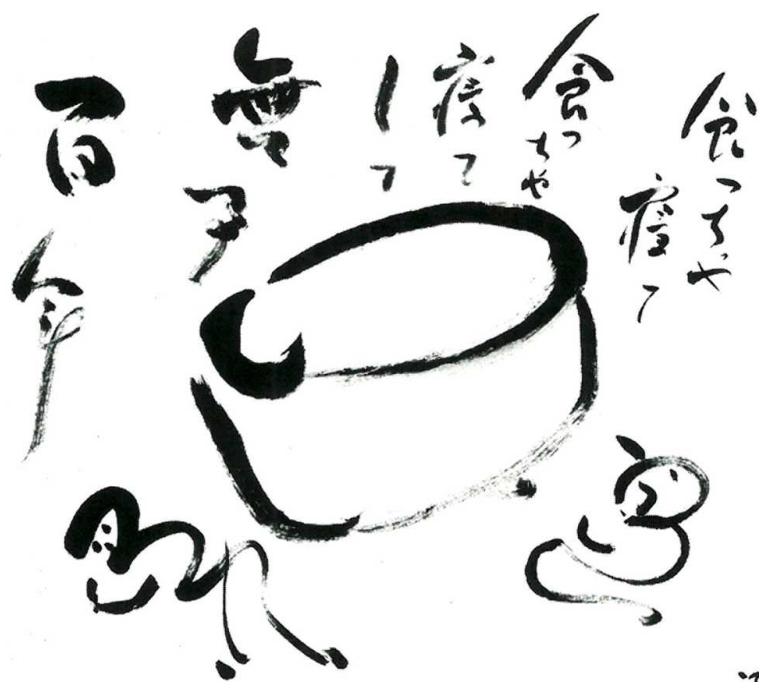 食っちや
寝て
食っちや
寝て
して
無事
百年